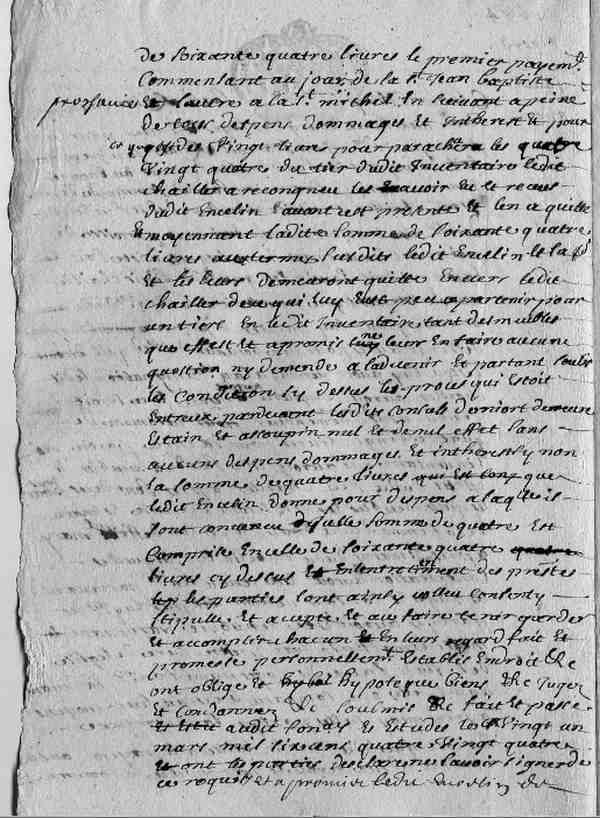 de soixante quatre livres le premier payemt
Commensant au jour de la st Jean baptiste
prochaine Et lautre a la st michel En suivant a peine
de tous despens dommages Et Intherest & pour
des Vingt livres pour parachever les quatre
Vingt quatre du tier dudit Inventaire ledit
chailler a recongneu les avoir Eu et receus
dudit Encelin avant cest presente et len a quitte
Et moyennant ladite somme de soixante quatre
livres aux termes susdits ledit Encelin Et la
Et les leurs demeuront quitte Envers ledit
chailler de ce qui luy Eut peu apartenir pour
un tiers En ledit Inventaire tant des meubles
que effest et a promis leur En faire aucune
question ny demende a ladvenir Et partant soubs
les Condision cy dessus les proces qui Estoit
Entreux pardevant lesdits Consuls de niort demeure
Estain Et assoupin nul Et de nul effet sans
aucuns despens dommages Et intherest sy non
la somme de quatre livres que
ledit Encelin donne pour despens a laquelle ils
sont convenue dycelle somme de quatre Est
Comprise En celle de soixante quatre
livres cy dessus Et En lentretenement des presantes
les parties sont ainsy voulleu Consenty
stipulle Et accepte Et au faire tenir garder
Et accomplir chacun En leurs regard fait Et
promesse personnellemt Establis Endroit &c
ont oblige Et hypoteque biens &c Juger
Et Condannez &c soubmis &c fait Et passe
audit fons Es Estudes le Vingt un
mars mil six cens quatre Vingt quatre
Et ont les parties desclare ne savoir signer de
ce requis Et a promis ledit Encelin de